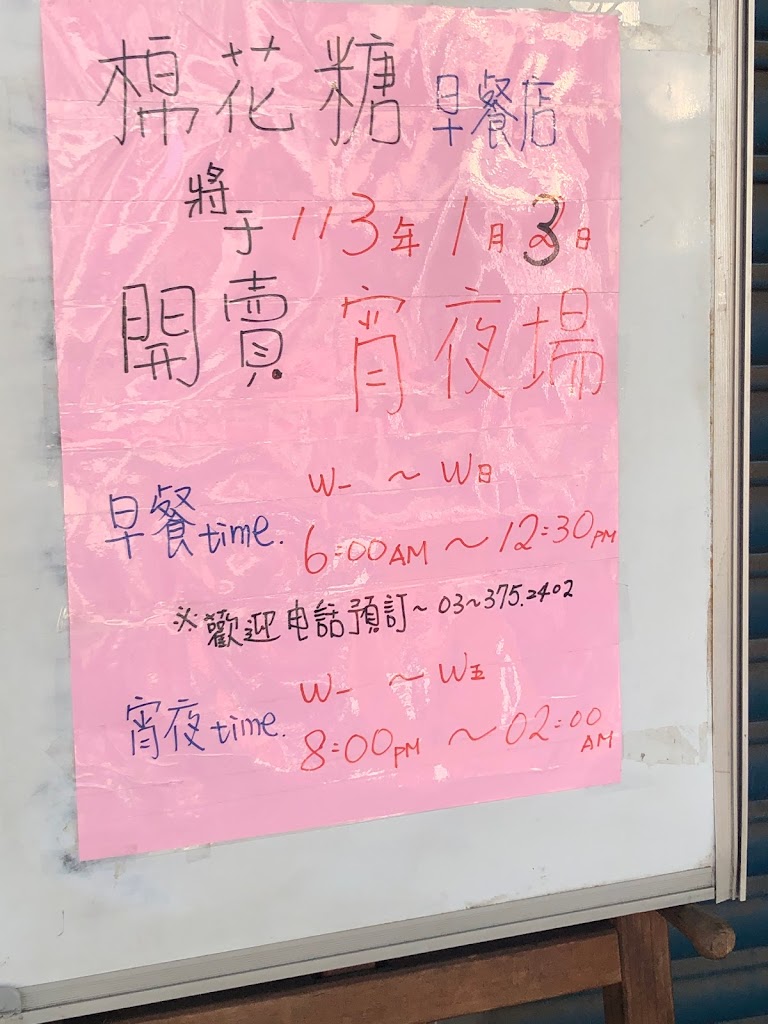 棉花糖 早餐店
將于 113年1月3日
開賣 宵夜場
W一 ~ W日
早餐time. 6:00AM ~ 12:30PM
※歡迎电話預訂~03~375.2402
W一 ~ W五
宵夜time. 8:00PM ~ 02:00AM